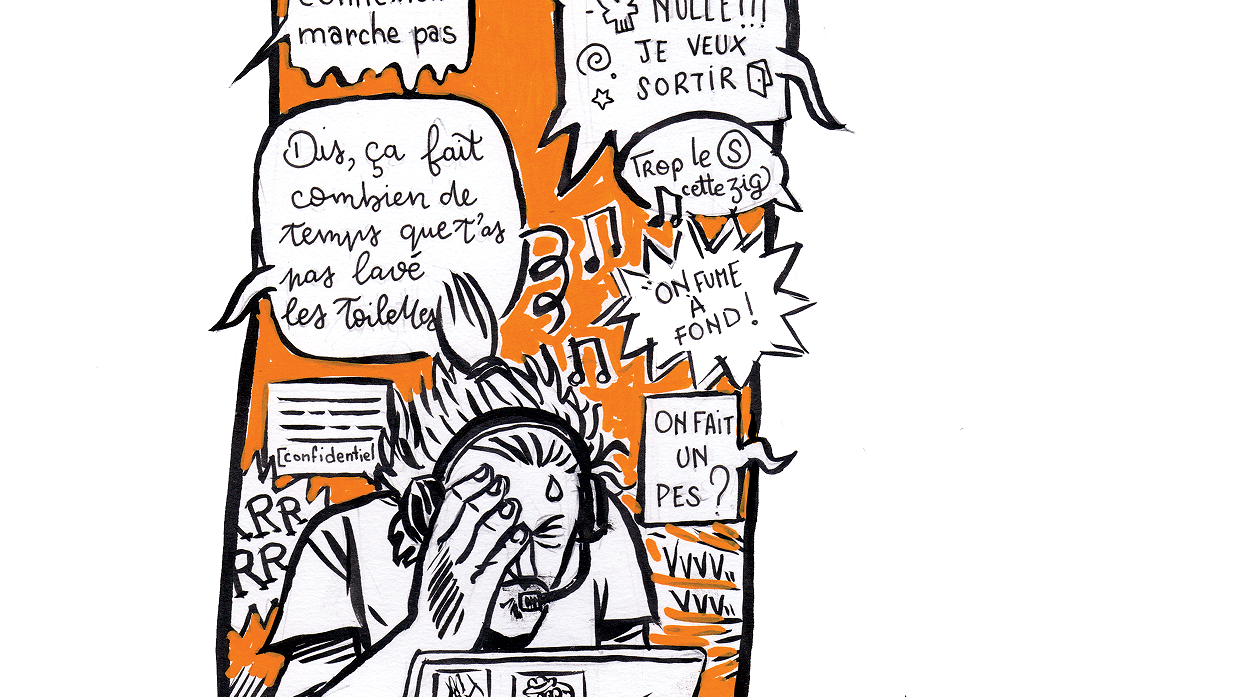 marche pas
NULLE!!!
JE VEUX
SORTIR
Dis, ça fait
combien de
temps que t'as
pas lavé
les toilettes
Trop le S
cette zig
"ON FUME
À
FOND!
[confidentiel
ON FAIT
UN
PES?
RR
RR
VVVV..
VVV..